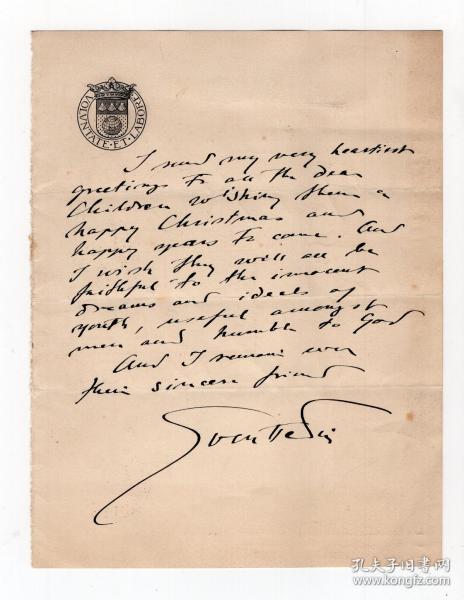 VOLVNTATE ET LABORE
I send my very heartiest
greetings to all the dear
Children wishing them a
happy Christmas and
happy years to come. And
I wish they will all be
faithful to the innocent
dreams and ideals of
youth, useful amongst
men and humble to God
And I remain ever
their sincere friend
Sven Hedin
孔夫子旧书网
www.kongfz.com